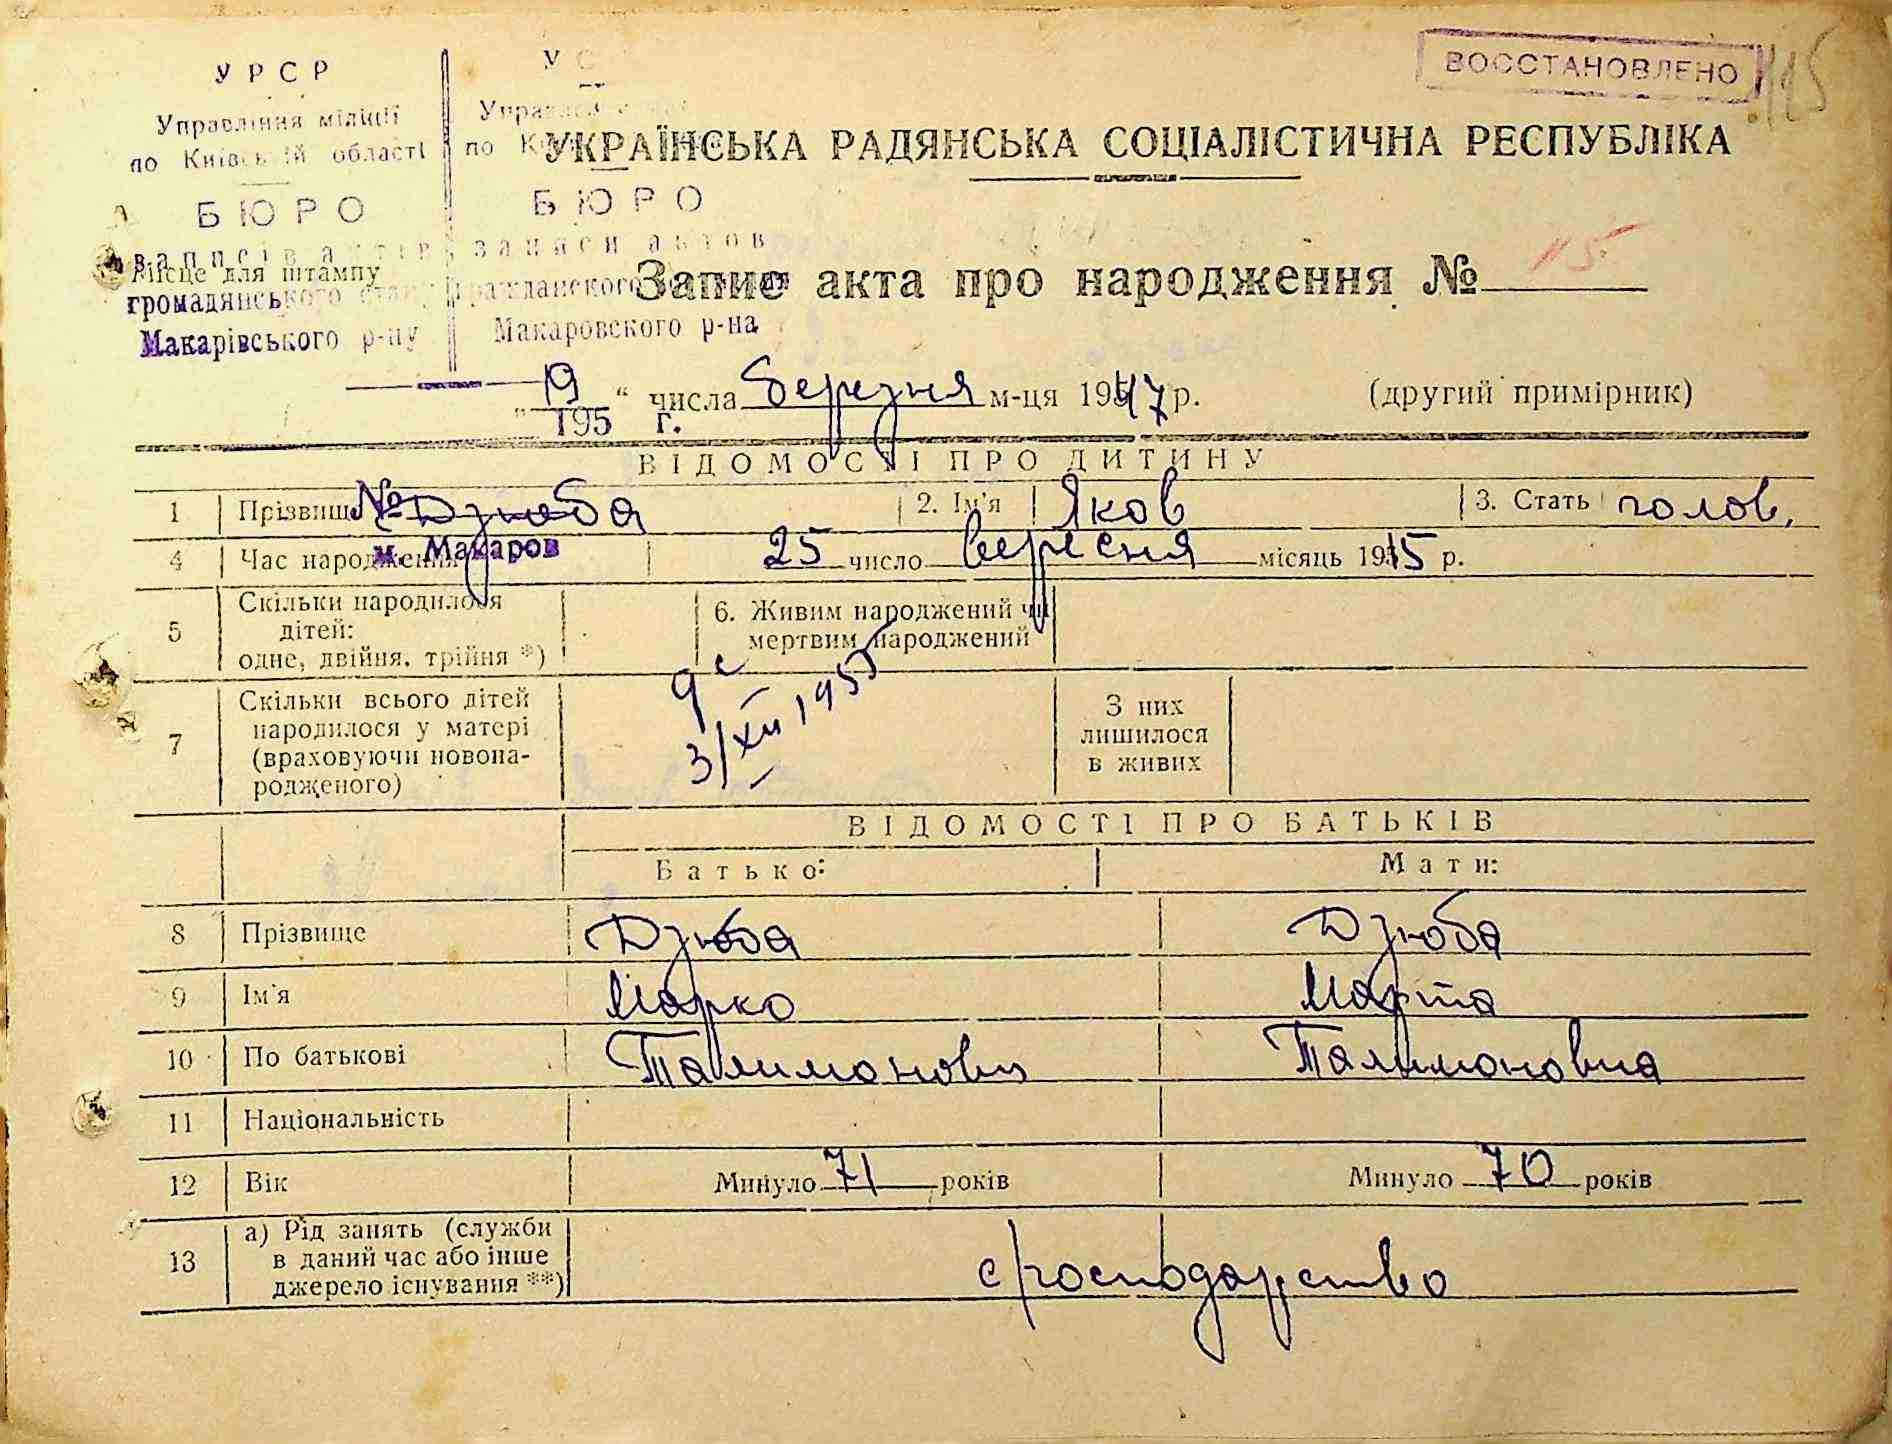 ВОССТАНОВЛЕНО
УРСР
Управління міліції
по Київській області
БЮРО
записів актів
громадянського стану
Макарівського р-ну
БЮРО
записи актов
гражданского
Макаровского р-на
Місце для штампу
УКРАЇНСЬКА РАДЯНСЬКА СОЦІАЛІСТИЧНА РЕСПУБЛІКА
Запис акта про народження № 15
„19“ числа березня м-ця 1947 р. (другий примірник)
195 г.
ВІДОМОСТІ ПРО ДИТИНУ
1 Прізвище Дзюба 2. Ім'я Яков 3. Стать чолов.
№
м. Макаров
4 Час народження 25 число вересня місяць 1915 р.
5 Скільки народилося дітей: одне, двійня, трійня *) 6. Живим народжений чи мертвим народжений
7 Скільки всього дітей народилося у матері (враховуючи новонародженого) З них лишилося в живих
3/XII 1955
ВІДОМОСТІ ПРО БАТЬКІВ
Батько: Мати:
8 Прізвище Дзюба Дзюба
9 Ім'я Марко Марта
10 По батькові Талимонович Талимоновна
11 Національність
12 Вік Минуло 71 років Минуло 70 років
13 а) Рід занять (служби в даний час або інше джерело існування **) с/господарство